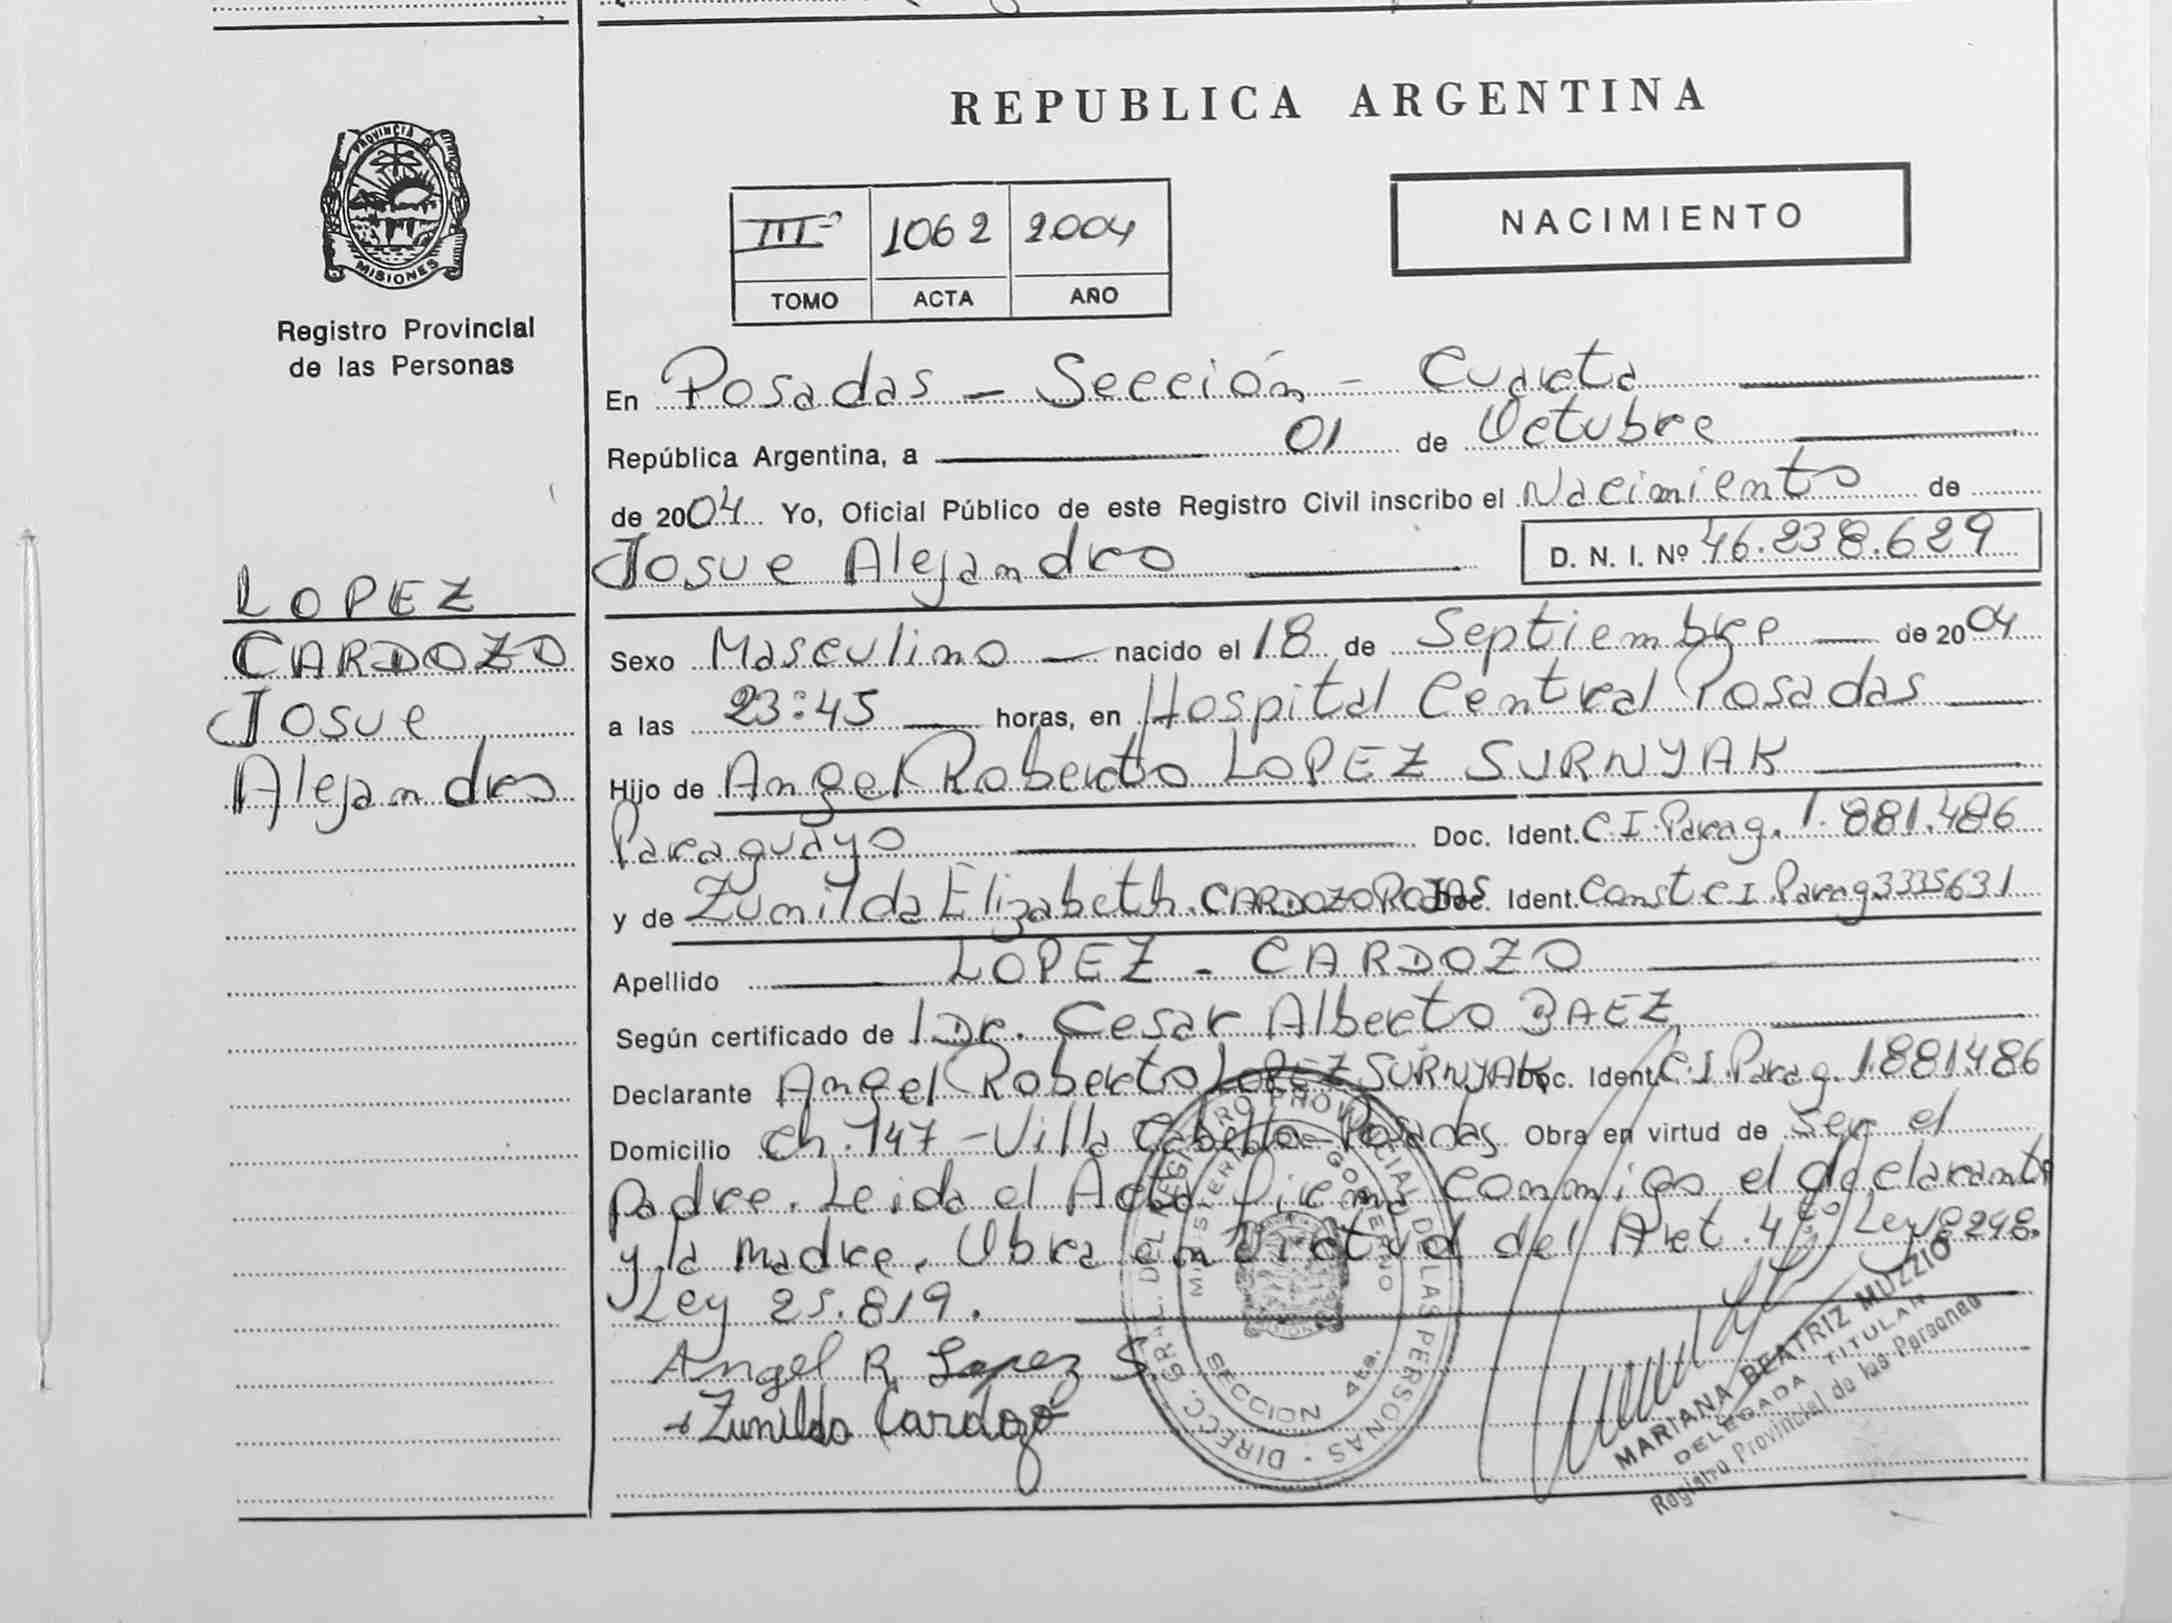 REPUBLICA ARGENTINA
PROVINCIA DE
MISIONES
Registro Provincial
de las Personas
III° 1062 2004
TOMO ACTA AÑO
NACIMIENTO
LOPEZ
CARDOZO
Josue
Alejandro
En Posadas - Sección - Cuarta
República Argentina, a 01 de Octubre
de 2004 Yo, Oficial Público de este Registro Civil inscribo el Nacimiento de
Josue Alejandro D. N. I. Nº 46.238.629
Sexo Masculino nacido el 18 de Septiembre de 2004
a las 23:45 horas, en Hospital Central Posadas
Hijo de Angel Roberto LOPEZ SURNYAK
Paraguayo Doc. Ident. C I Parag. 1.881.486
y de Zunilda Elizabeth CARDOZO ROJAS Doc. Ident. Const C I Parag 3335631
Apellido LOPEZ - CARDOZO
Según certificado de Dr. Cesar Alberto BAEZ
Declarante Angel Roberto LOPEZ SURNYAK Doc. Ident. C.I. Parag. 1.881.486
Domicilio Ch. 147 - Villa Cabello - Posadas Obra en virtud de Ser el
padre. Leida el Acta Firma conmigo el declarante
y la madre. Obra en Virtud del Art. Ley 8248.
Ley 25.819.
Angel R. Lopez S.
Zunilda Cardozo
DIRECC. GRAL. DEL REGISTRO PROVINCIAL DE LAS PERSONAS
MINISTERIO GOBIERNO
SECCION 4ta.
MARIANA BEATRIZ MUZZIO
DELEGADA TITULAR
Registro Provincial de las Personas